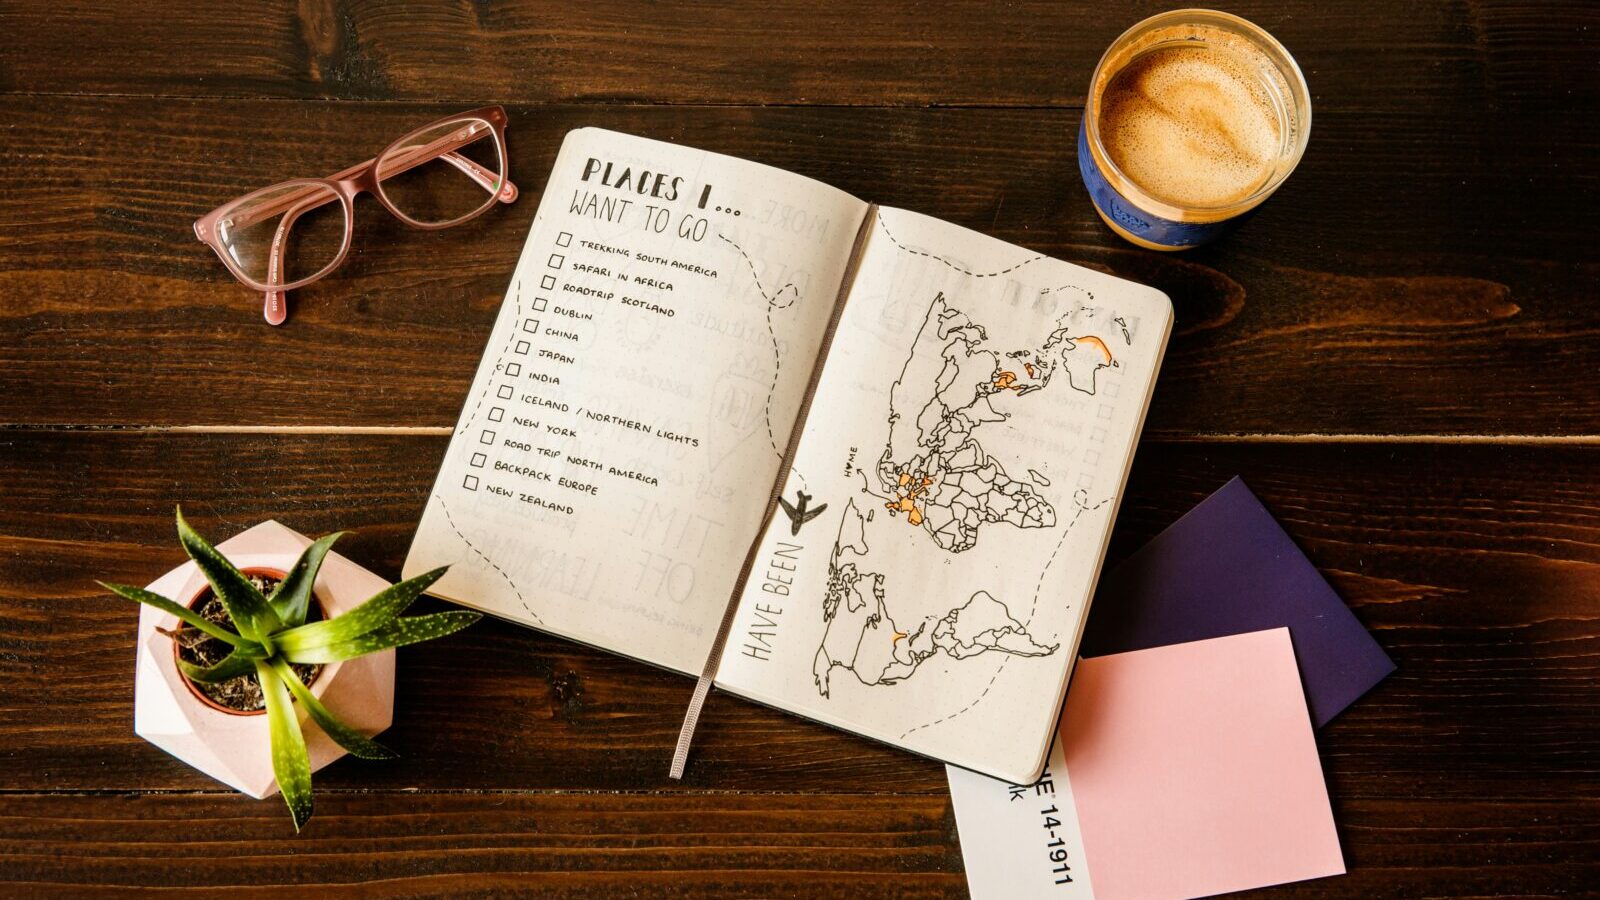 PLACES I...
WANT TO GO
TREKKING SOUTH AMERICA
SAFARI IN AFRICA
ROADTRIP SCOTLAND
DUBLIN
CHINA
JAPAN
INDIA
ICELAND / NORTHERN LIGHTS
NEW YORK
ROAD TRIP NORTH AMERICA
BACKPACK EUROPE
NEW ZEALAND
HAVE BEEN
HOME
14-1911